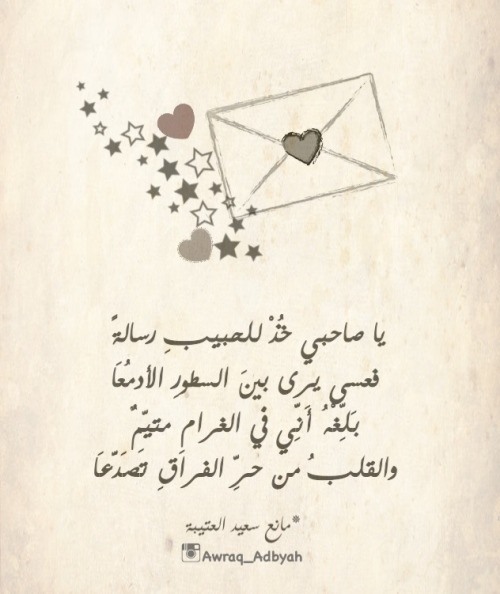 يا صاحبي خُذْ للحبيبِ رسالةً
فعسى يرى بينَ السطورِ الأدمُعَا
بَلِّغْهُ أَنِّي في الغرامِ متيّمٌ
والقلبُ من حرِّ الفراقِ تَصَدّعَا
*مانع سعيد العتيبة
Awraq_Adbyah